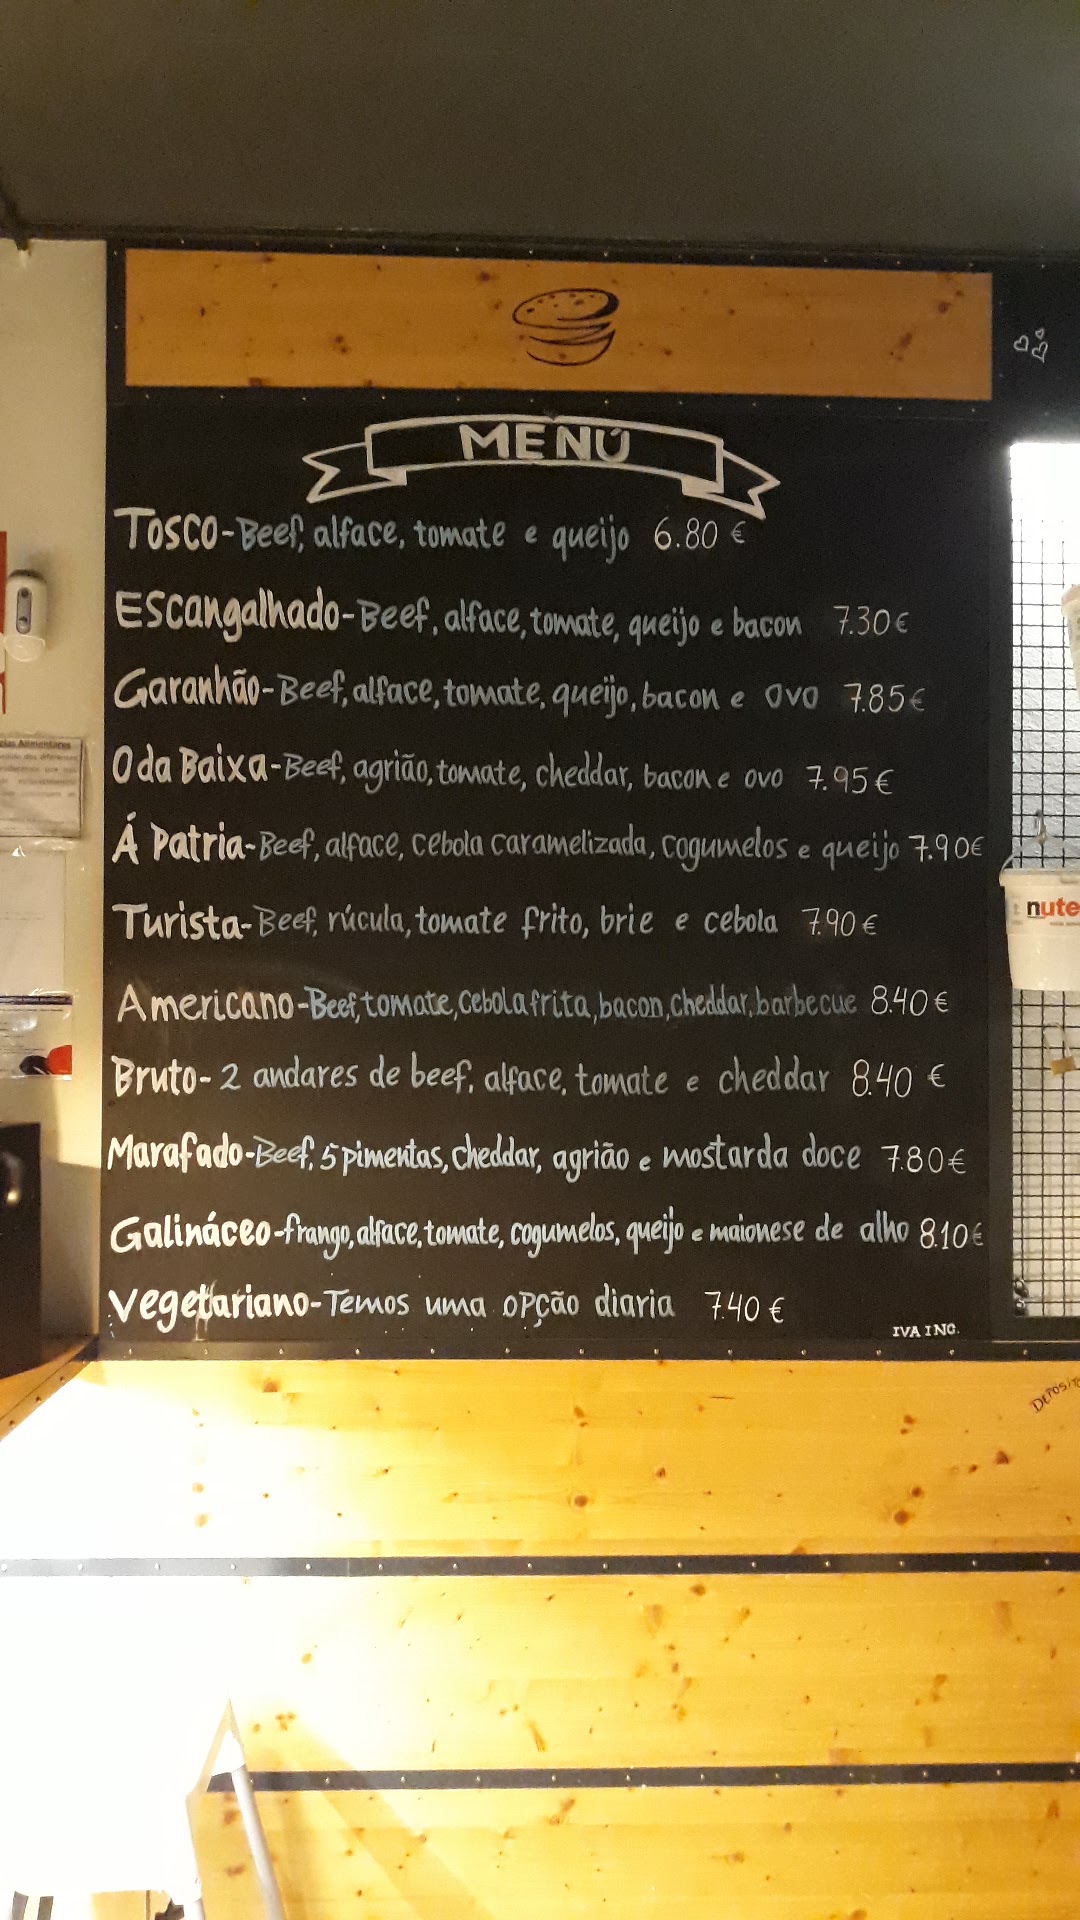 MENÚ
Tosco-Beef, alface, tomate e queijo 6.80 €
Escangalhado-Beef, alface, tomate, queijo e bacon 7.30€
Garanhão-Beef, alface, tomate, queijo, bacon e ovo 7.85€
O da Baixa-Beef, agrião, tomate, cheddar, bacon e ovo 7.95€
Á Patria-Beef, alface, cebola caramelizada, cogumelos e queijo 7.90€
Turista-Beef, rúcula, tomate frito, brie e cebola 7.90€
nute
Americano-Beef, tomate, cebola frita, bacon, cheddar, barbecue 8.40€
Bruto-2 andares de beef, alface, tomate e cheddar 8.40 €
Marafado-Beef, 5 pimentas, cheddar, agrião e mostarda doce 7.80€
Galináceo-frango, alface, tomate, cogumelos, queijo e maionese de alho 8.10€
Vegetariano-Temos uma opção diaria 7.40€
IVA INC.